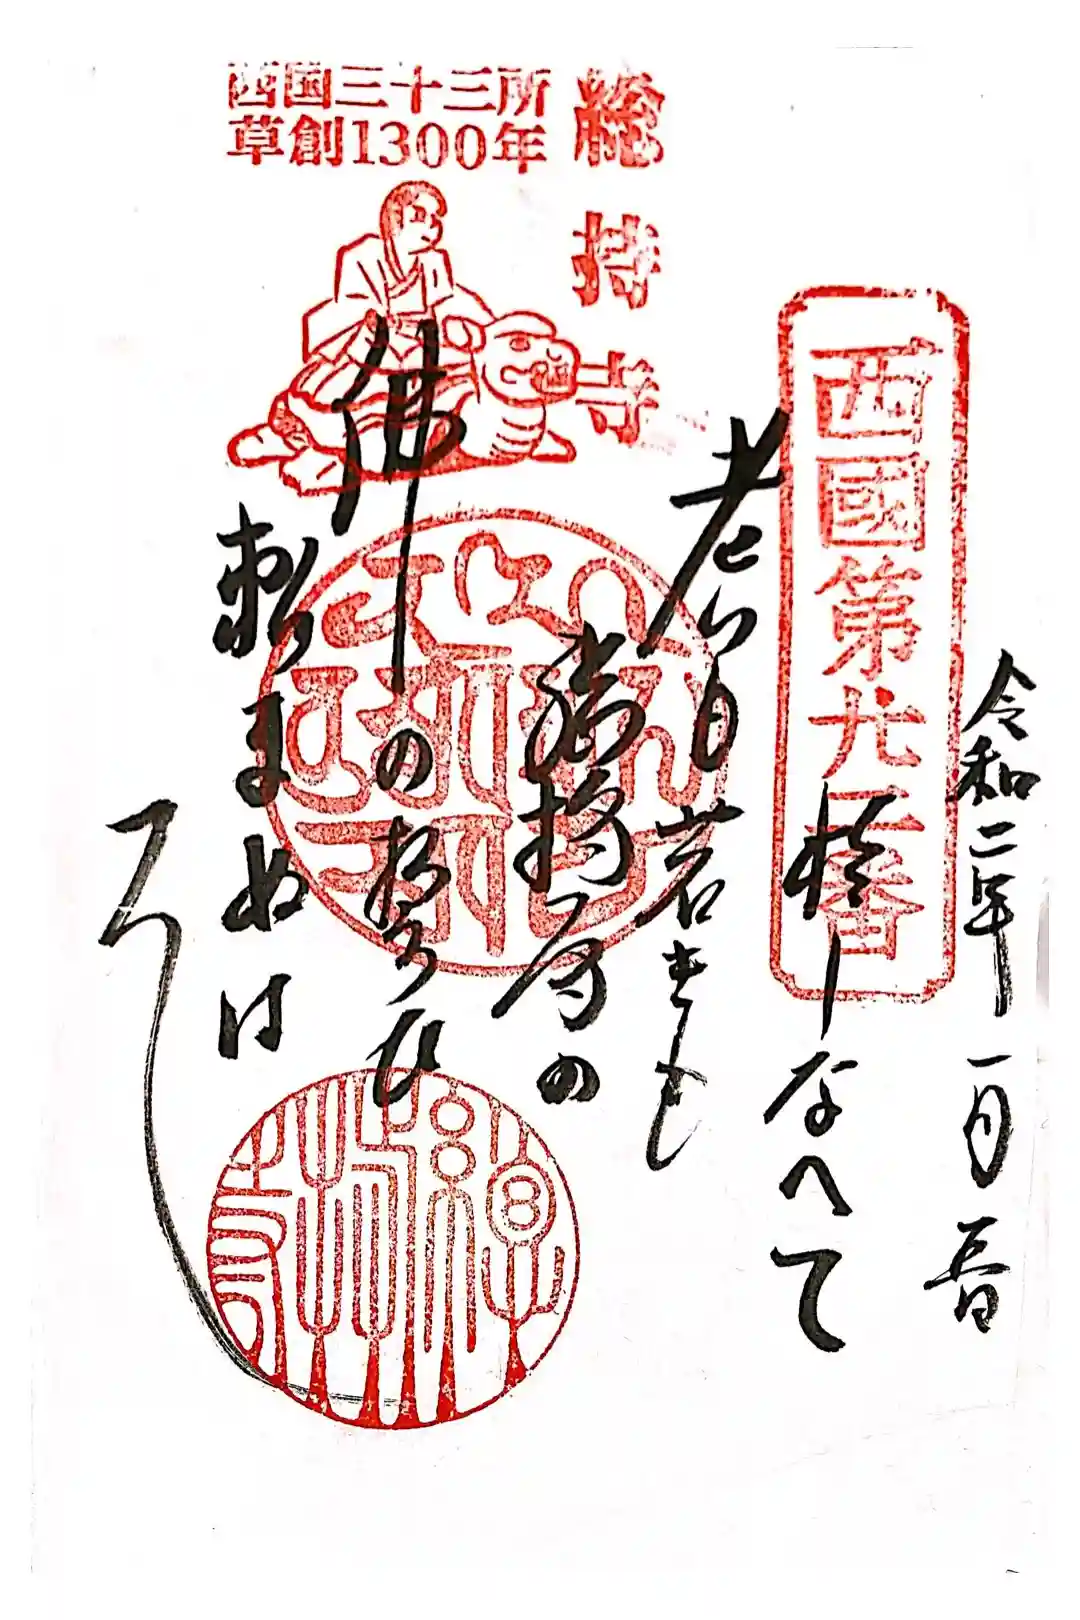 西国三十三所
草創1300年
總持寺
西國第廿二番
令和二年一月
しなへて
老いも若きも
總持寺の
佛の誓ひ
頼まぬは
なし
總持寺